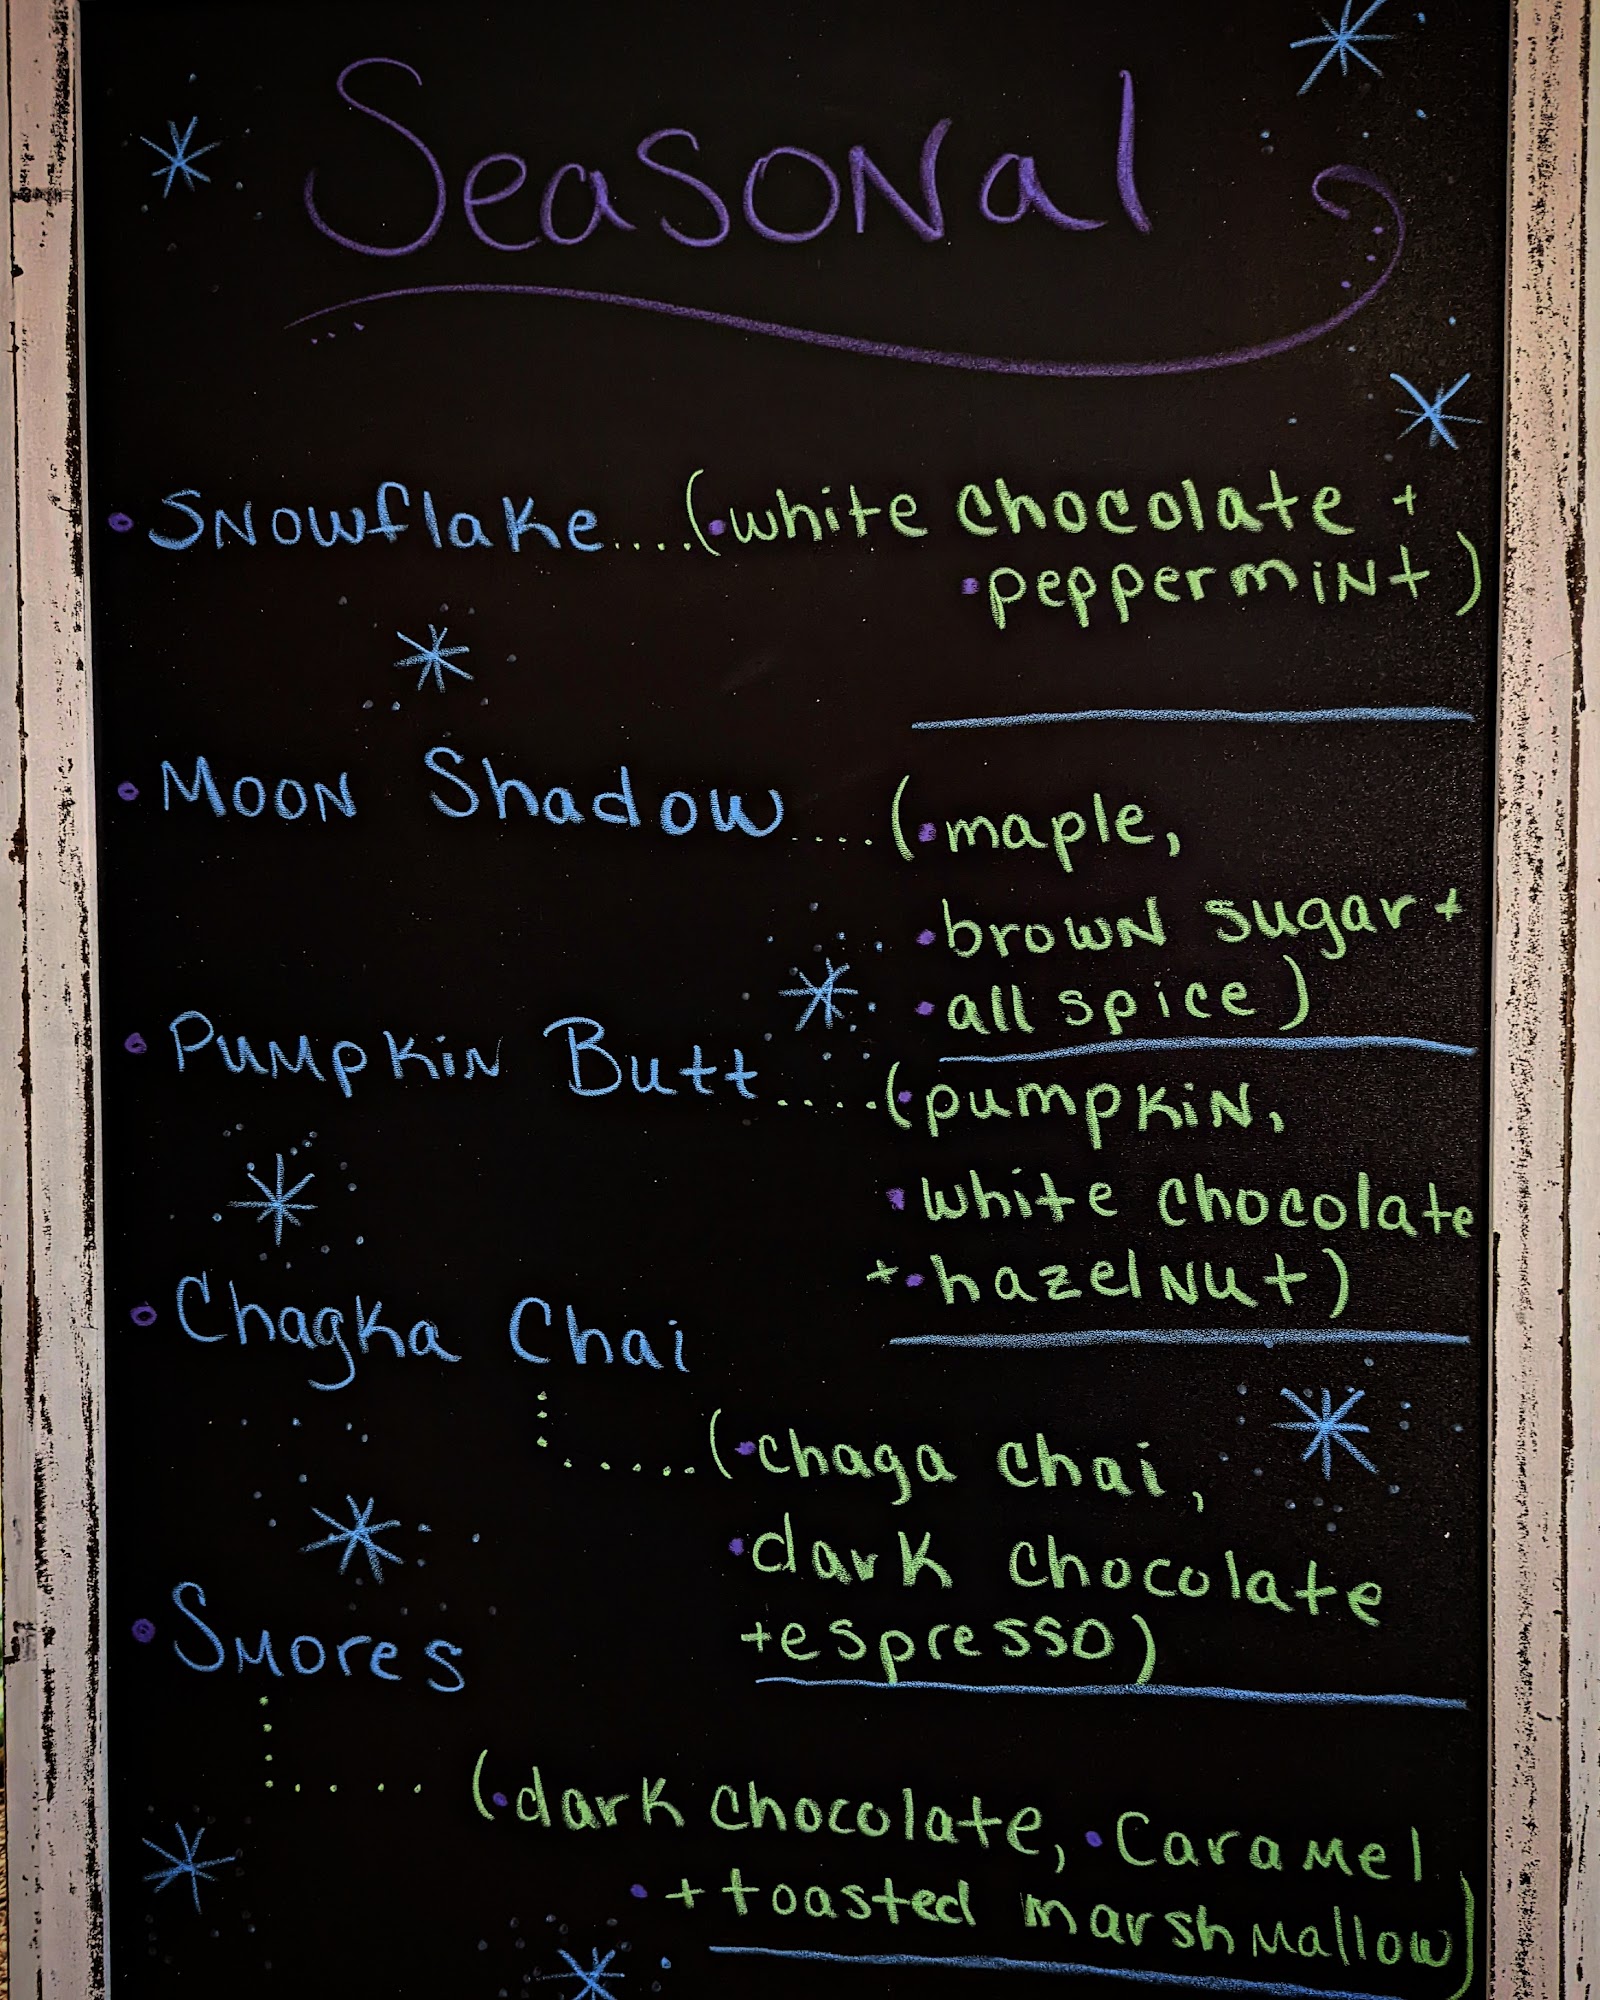 Seasonal
• Snowflake....(•white chocolate +
•peppermint)
• Moon Shadow....(•maple,
•brown sugar +
•all spice)
• Pumpkin Butt....(•pumpkin,
•white chocolate
+•hazelnut)
• Chagka Chai
.......(•chaga chai,
•dark chocolate
+espresso)
• Smores
.......(•dark chocolate, •Caramel
•+toasted marshmallow)